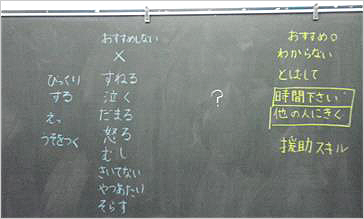 おすすめしない
×
びっくり
する
えっ
うそをつく
すねる
泣く
だまる
怒る
むし
きいてない
やつあたり
そらす
?
おすすめ。
わからない
とばして
時間下さい
他の人にきく
援助スキル